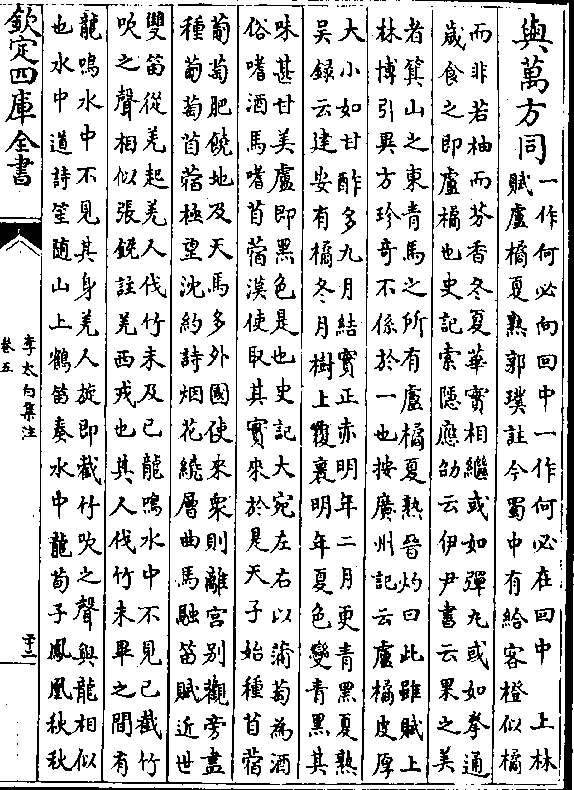 與萬方同
一作何必向回中一作何必在回中　上林
賦盧橘夏熟郭璞註今蜀中有給客橙似橘
而非若柚而芬香冬夏華實相繼或如彈丸或如拳通
歲食之即盧橘也史記索隱應劭云伊尹書云果之美
者箕山之東青馬之所有盧橘夏熟晉灼曰此雖賦上
林博引異方珍奇不係於一也按廣州記云盧橘皮厚
大小如甘酢多九月結實正赤明年二月更青黑夏熟
吳録云建安有橘冬月樹上覆裹明年夏色變青黑其
味甚甘美盧即黑色是也史記大宛左右以蒲萄為酒
俗嗜酒馬嗜苜蓿漢使取其實來於是天子始種苜蓿
葡萄肥饒地及天馬多外國使來衆則離宫别觀旁盡
種葡萄苜蓿極望沈約詩烟花繞層曲馬融笛賦近世
雙笛從羌起羌人伐竹未及已龍鳴水中不見已截竹
吹之聲相似張銑註羌西戎也其人伐竹未畢之間有
龍鳴水中不見其身羌人旋即截竹吹之聲與龍相似
也水中道詩笙隨山上鶴笛奏水中龍荀子鳳凰秋秋
欽定四庫全書
李太白集注
卷五